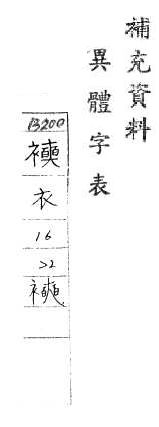 補充資料
異體字表
B200
襫
衣
16
22